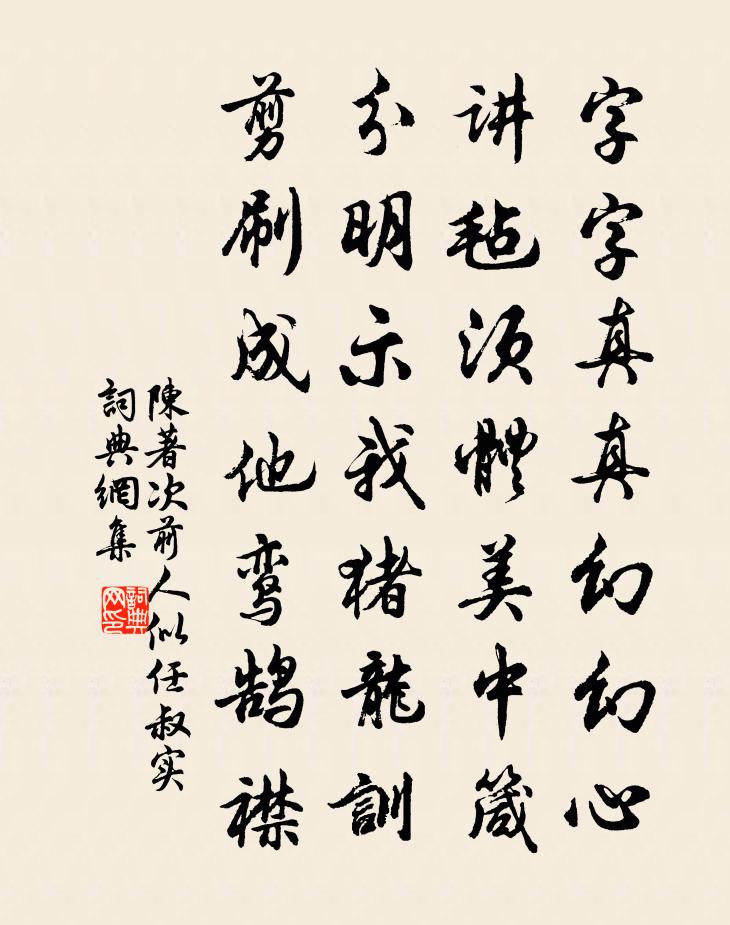 字字真真幻幻心
讲毡须體美中箴
分明示我猪龍訓
剪刷成他鸾鹄襟
陳著次前人似任叔实
詞典網集
詞典网印